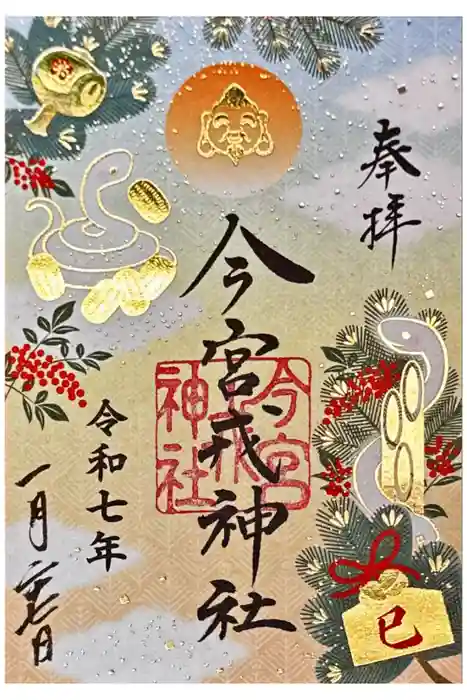 奉拝
今宮戎神社
今宮
戎
神社
令和七年
一月 日
巳